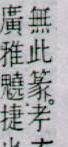 無此篆。孝
廣雅捷